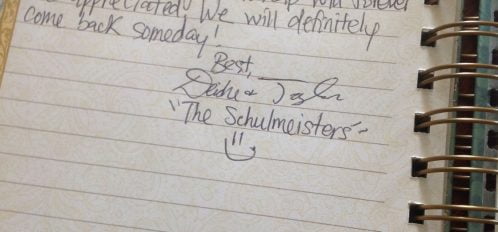 appreciated! We will definitely
come back someday!
Best,
"The Schulmeisters"